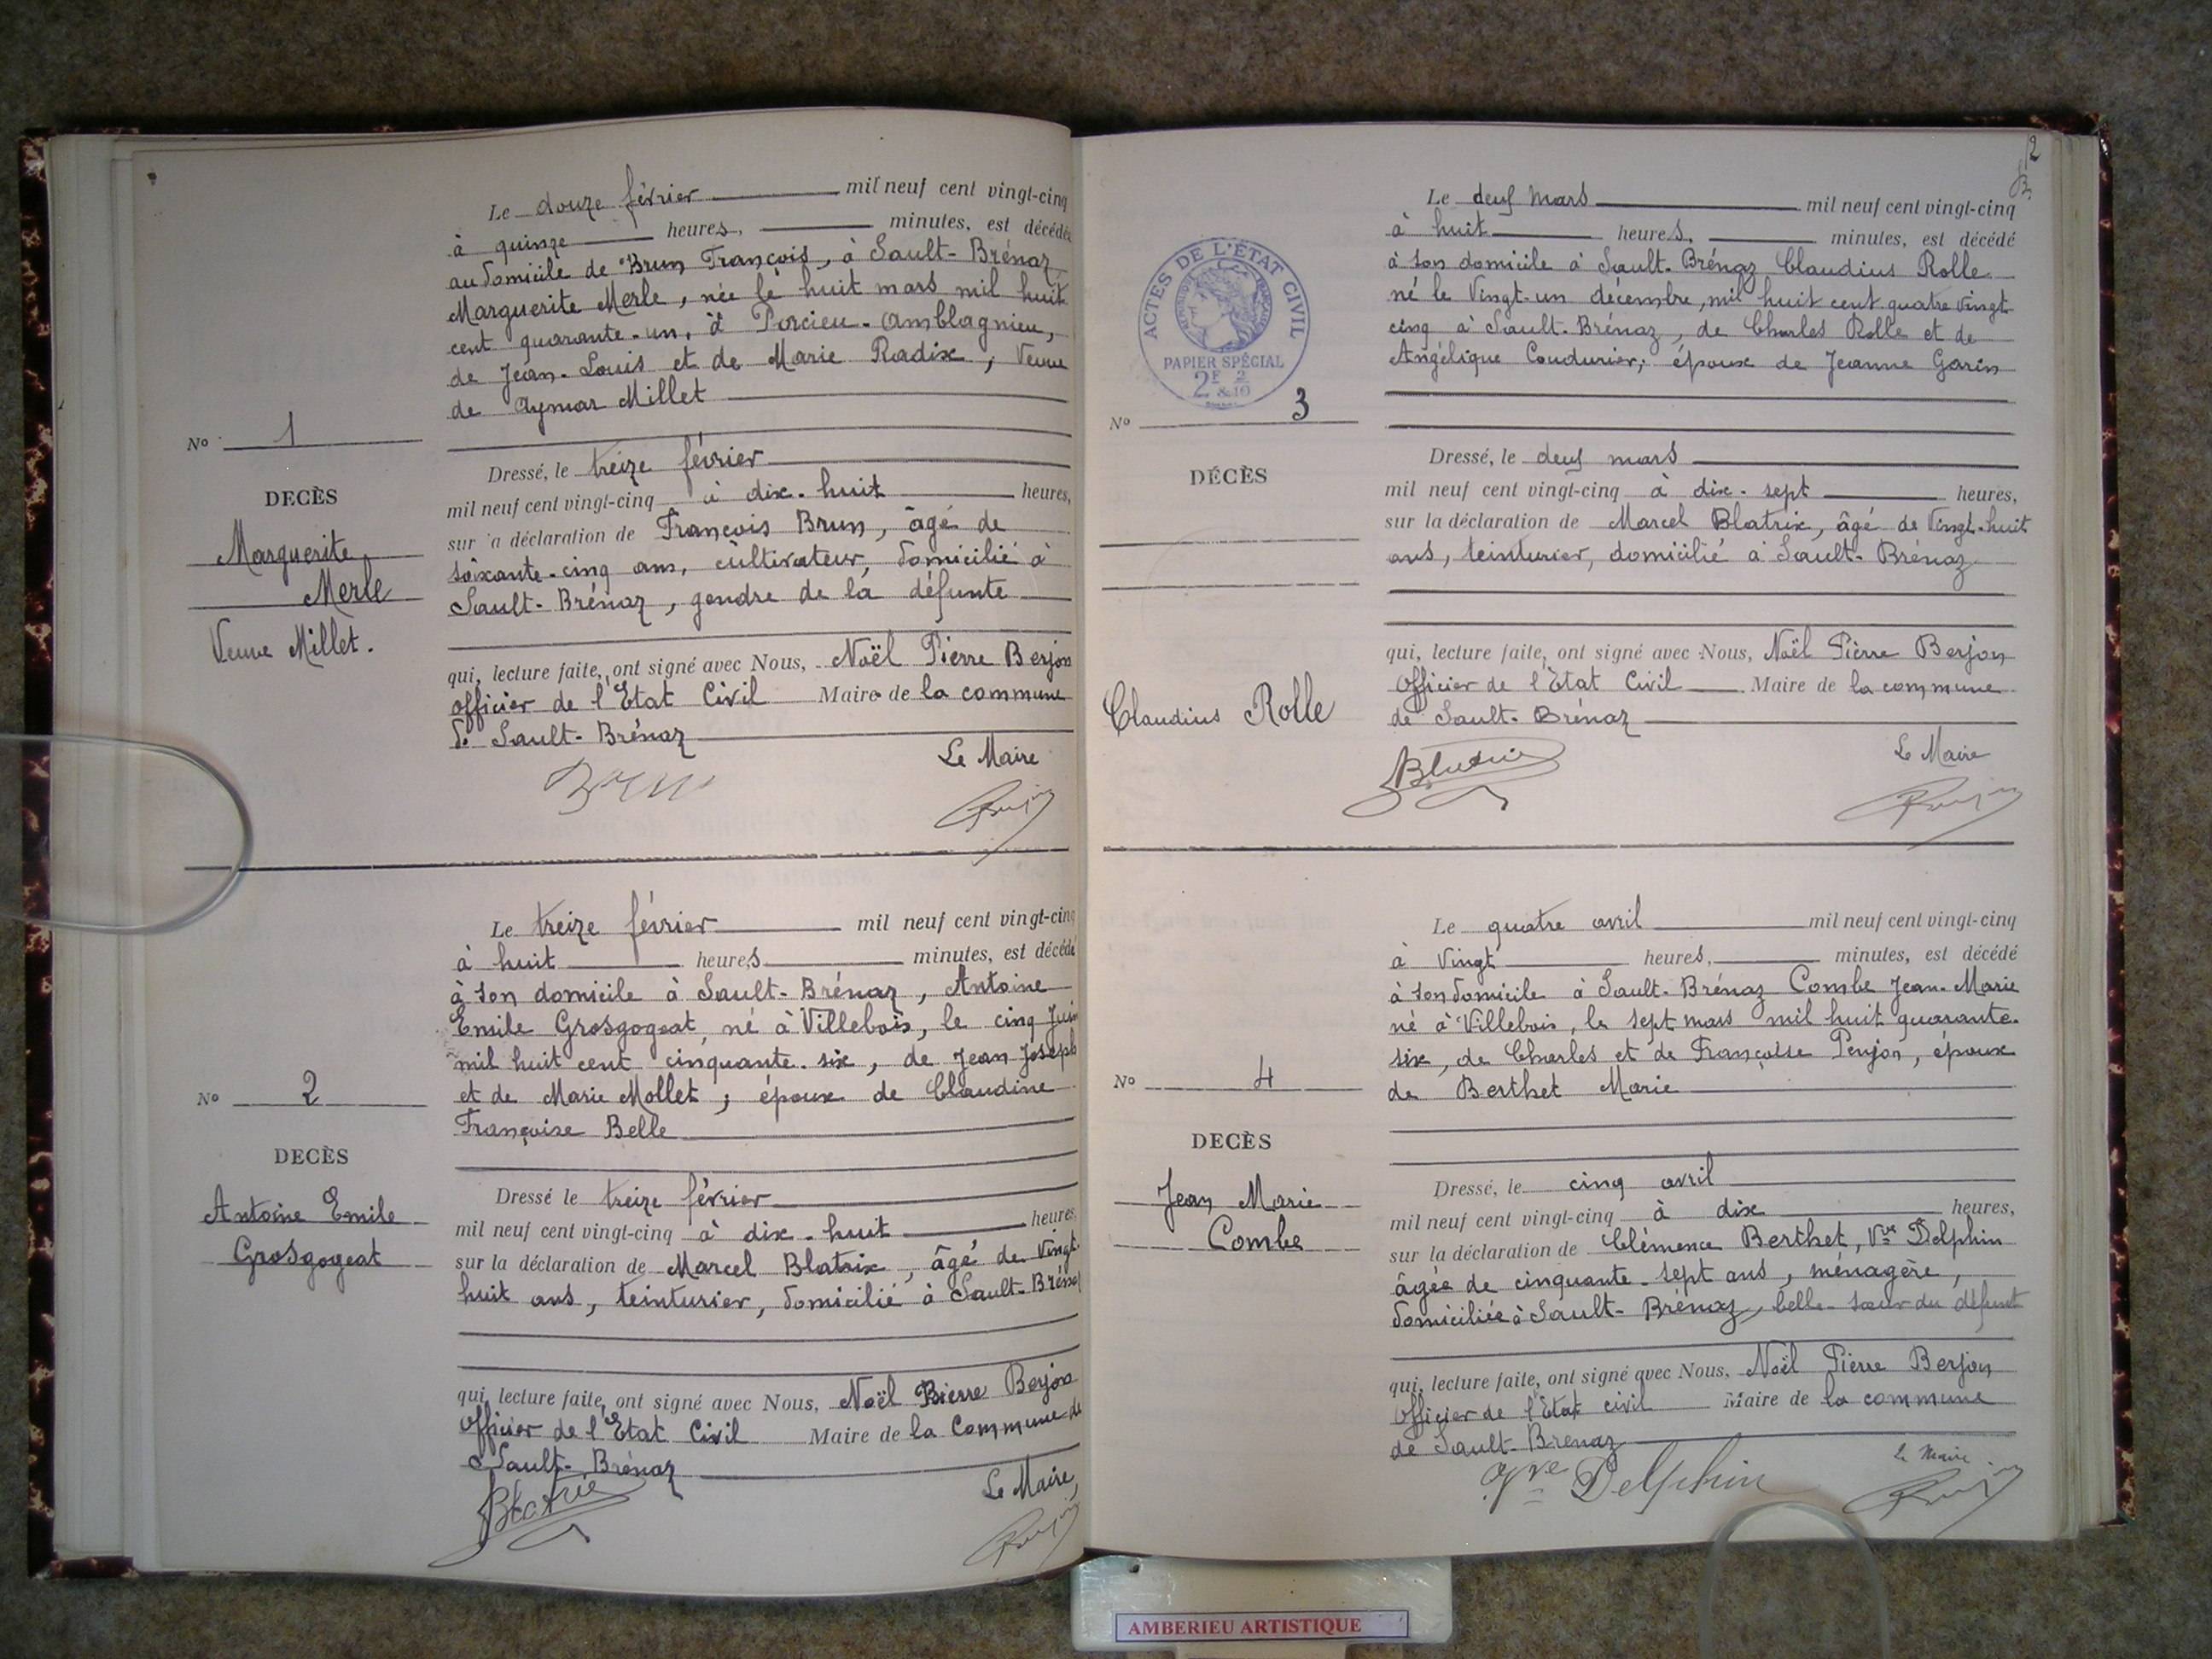 Le douze février mil neuf cent vingt-cinq
à quinze heures, minutes, est décédée
au domicile de Brun François, à Sault-Brénaz
Marguerite Merle, née le huit mars mil huit
cent quarante-un, à Porcieu-Amblagnieu,
de Jean-Louis et de Marie Radix, Veuve
de Aymar Millet
No 1
DECÈS
Marguerite
Merle
Veuve Millet.
Dressé, le treize février
mil neuf cent vingt-cinq à dix-huit heures,
sur la déclaration de François Brun, âgé de
soixante-cinq ans, cultivateur, domicilié à
Sault-Brénaz, gendre de la défunte
qui, lecture faite, ont signé avec Nous, Noël Pierre Berjon
officier de l'Etat Civil Maire de la commune
de Sault-Brénaz
Le Maire
Le treize février mil neuf cent vingt-cinq
à huit heures minutes, est décédé
à son domicile à Sault-Brénaz, Antoine
Emile Grosgogeat, né à Villebois, le cinq Juin
mil huit cent cinquante-six, de Jean Joseph
et de Marie Mollet, époux de Claudine
Françoise Belle
No 2
DECÈS
Antoine Emile
Grosgogeat
Dressé le treize février
mil neuf cent vingt-cinq à dix-huit heures
sur la déclaration de Marcel Blatrix, âgé de Vingt-
huit ans, teinturier, domicilié à Sault-Brénaz
qui, lecture faite, ont signé avec Nous, Noël Pierre Berjon
Officier de l'Etat Civil Maire de la Commune de
Sault-Brénaz
Le Maire,
2
ACTES DE L'ÉTAT CIVIL
PAPIER SPÉCIAL
Le deux mars mil neuf cent vingt-cinq
à huit heures, minutes, est décédé
à son domicile à Sault-Brénaz Claudius Rolle
né le Vingt-un décembre, mil huit cent quatre vingt
cinq à Sault-Brénaz, de Charles Rolle et de
Angélique Coudurier, époux de Jeanne Garin
No 3
DÉCÈS
Claudius Rolle
Dressé, le deux mars
mil neuf cent vingt-cinq à dix-sept heures,
sur la déclaration de Marcel Blatrix, âgé de Vingt-huit
ans, teinturier, domicilié à Sault-Brénaz
qui, lecture faite, ont signé avec Nous, Noël Pierre Berjon
Officier de l'Etat Civil Maire de la commune
de Sault-Brénaz
Le Maire
Le quatre avril mil neuf cent vingt-cinq
à Vingt heures, minutes, est décédé
à son domicile à Sault-Brénaz Combe Jean-Marie
né à Villebois, le sept mars mil huit quarante-
six, de Charles et de Françoise Penjon, époux
de Berthet Marie
No 4
DECÈS
Jean Marie
Combe
Dressé, le cinq avril
mil neuf cent vingt-cinq à dix heures,
sur la déclaration de Clémence Berthet, Vve Delphin
âgée de cinquante-sept ans, ménagère,
domiciliée à Sault-Brénaz, belle-sœur du défunt
qui, lecture faite, ont signé avec Nous, Noël Pierre Berjon
Officier de l'Etat civil Maire de la commune
de Sault-Brenaz
Vve Delphin
Le Maire
AMBERIEU ARTISTIQUE